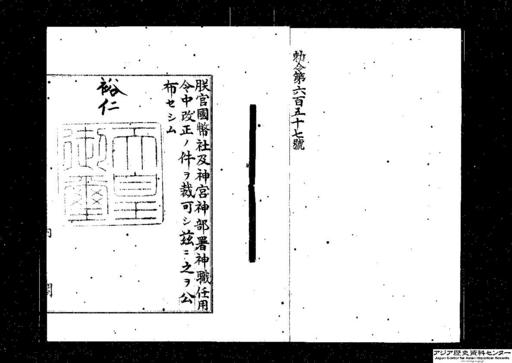 勅令第六百五十七號
朕官國幣社及神宮神部署神職任用
令中改正ノ件ヲ裁可シ茲ニ之ヲ公
布セシム
裕仁
天皇
御璽
内閣
アジア歴史資料センター
Japan Center for Asian Historical Records